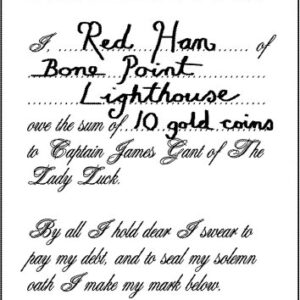 I, Red Han of
Bone Point
Lighthouse
owe the sum of 10 gold coins
to Captain James Gant of The
Lady Luck.
By all I hold dear I swear to
pay my debt, and to seal my solemn
oath I make my mark below.